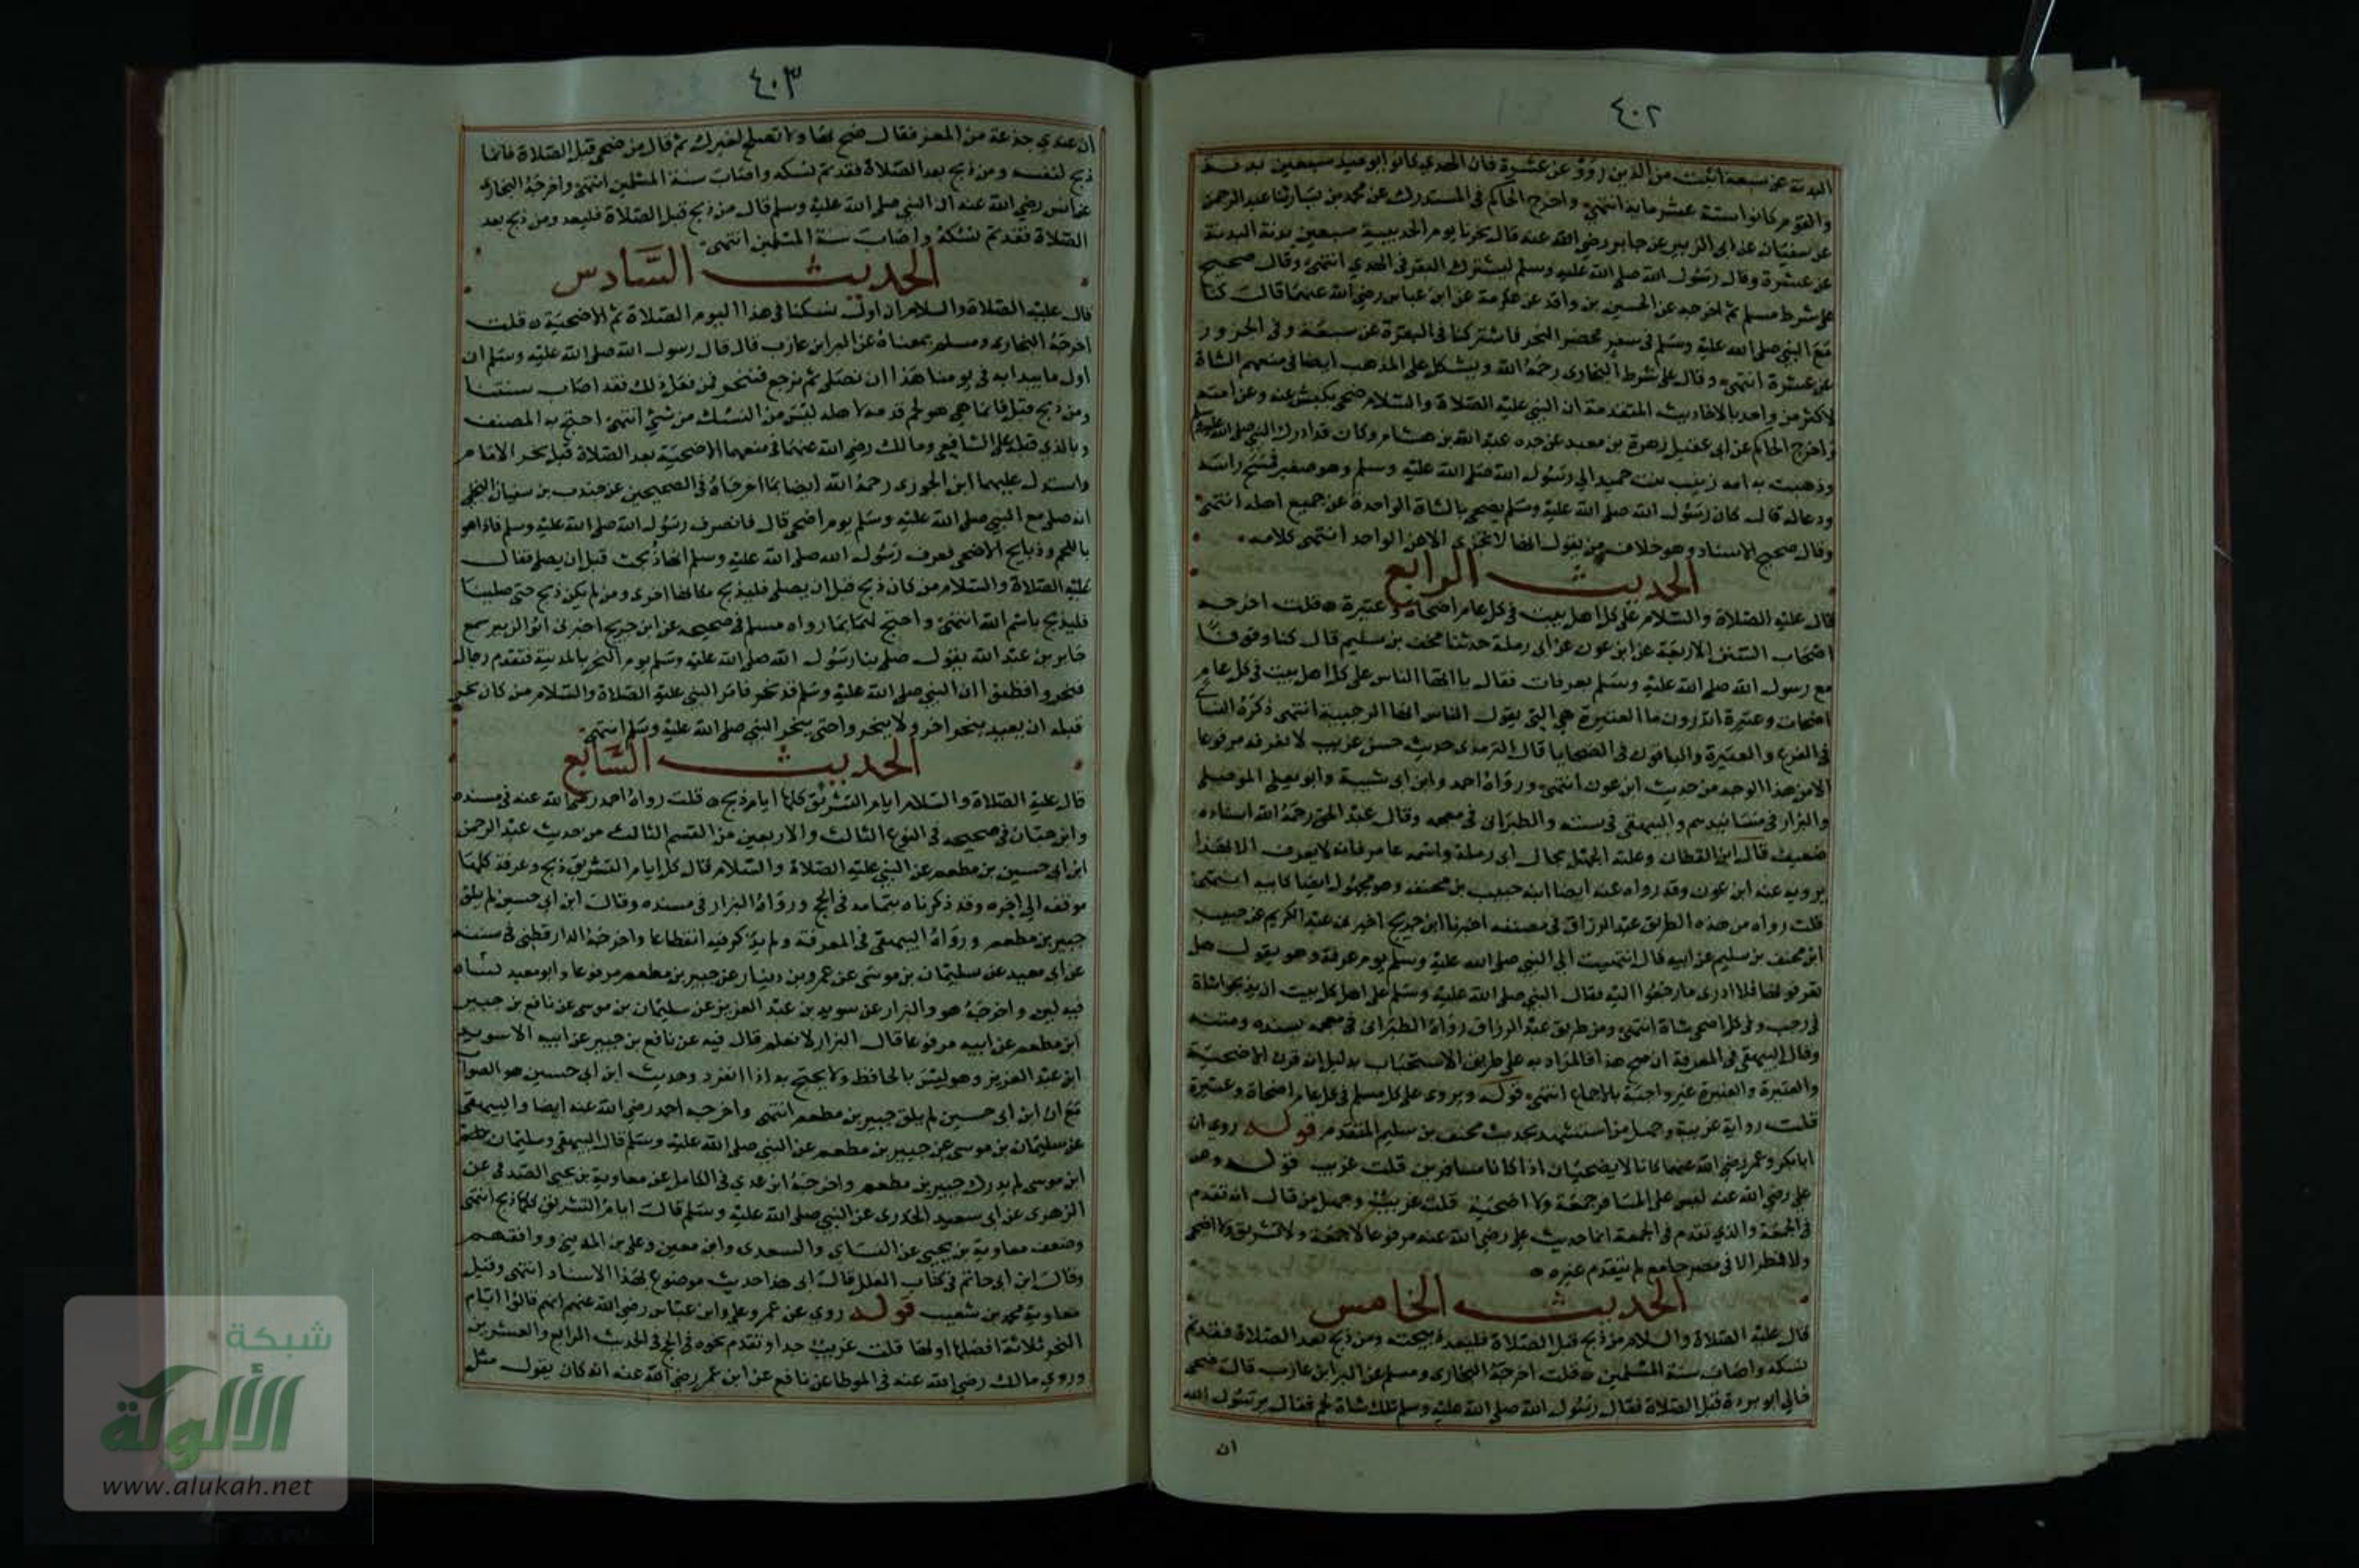 ٤٠٢
البدنة عن سبعة اثبت من الذين رووا عن عشرة فان الهدي كانوا ابو عبيد سبعين بدنة
والقوم كانوا ستة عشر ماية انتهى واخرج الحاكم في المستدرك عن محمد بن بشار ثنا عبد الرحمن
عن سفيان عن ابى الزبير عن جابر رضي الله عنه قال نحرنا يوم الحديبية سبعين بدنة البدنة
عن عشرة وقال رسول الله صلى الله عليه وسلم ليشترك البقر في الهدي انتهى وقال صحيح
على شرط مسلم ثم اخرجه عن الحسين بن واقد عن عكرمة عن ابن عباس رضي الله عنهما قال كنا
مع النبي صلى الله عليه وسلم في سفر فحضر النحر فاشتركنا في البقرة عن سبعة وفي الجزور
عن عشرة انتهى وقال على شرط البخارى رحمه الله ويشكل على المذهب ايضا في منعهم الشاة
لاكثر من واحد بالاحاديث المتقدمة ان النبي عليه الصلاة والسلام ضحى بكبش عنه وعن امته
واخرج الحاكم عن ابى عقيل زهرة بن معبد عن جده عبد الله بن هشام وكان قد ادرك النبي صلى الله عليه وسلم
وذهبت به امه زينب بنت حميد الي رسول الله صلى الله عليه وسلم وهو صغير فمسح راسه
ودعا له قال كان رسول الله صلى الله عليه وسلم يضحى بالشاة الواحدة عن جميع اهله انتهى
وقال صحيح الاسناد وهو خلاف من يقول انها لا تجزى الا عن الواحد انتهى كلامه
الحديث الرابع
قال عليه الصلاة والسلام على كل اهل بيت في كل عام اضحاة وعتيرة قلت اخرجه
اصحاب السنن الاربعة عن ابن عون عن ابى رملة حدثنا مخنف بن سليم قال كنا وقوفا
مع رسول الله صلى الله عليه وسلم بعرفات فقال يا ايها الناس على كل اهل بيت في كل عام
اضحاة وعتيرة اتدرون ما العتيرة هي التي يقول الناس انها الرجبية انتهى ذكره النسائي
في الفرع والعتيرة والباقون في الضحايا قال الترمذى حديث حسن غريب لا نعرفه مرفوعا
الا من هذا الوجه من حديث ابن عون انتهى ورواه احمد وابن ابى شيبة وابو يعلى الموصلي
والبزار في مسانيدهم والبيهقي في سننه والطبراني في معجمه وقال عبد الحق رحمه الله اسناده
ضعيف قال ابن القطان وعلته الجهل بحال ابى رملة واسمه عامر فانه لا يعرف الا بهذا
يرويه عنه ابن عون وقد رواه عنه ايضا ابنه حبيب بن مخنف وهو مجهول ايضا كابيه انتهى
قلت رواه من هذه الطريق عبد الرزاق في مصنفه اخبرنا ابن جريج اخبرني عبد الكريم عن حبيب
ابن مخنف بن سليم عن ابيه قال انتهيت الى النبي صلى الله عليه وسلم يوم عرفة وهو يقول هل
تعرفونها فلا ادرى ما رجعوا اليه فقال النبي صلى الله عليه وسلم على اهل كل بيت ان يذبحوا شاة
في رجب وفي كل اضحى شاة انتهى ومن طريق عبد الرزاق رواه الطبراني في معجمه بسنده ومتنه
وقال البيهقي في المعرفة ان صح هذا فالمراد به على طريق الاستحباب بدليل انه قرن الاضحية
والعتيرة والعتيرة غير واجبة بالاجماع انتهى قوله ويروى على كل مسلم في كل عام اضحاة وعتيرة
قلت رواية غريبة وجهل من استشهد بحديث مخنف بن سليم المتقدم قوله روي ان
ابا بكر وعمر رضي الله عنهما كانا لا يضحيان اذا كانا مسافرين قلت غريب قوله وعن
علي رضي الله عنه ليس على المسافر جمعة ولا اضحية قلت غريب وجهل من قال انه تقدم
في الجمعة والذي تقدم في الجمعة انما حديث علي رضي الله عنه مرفوعا لا جمعة ولا تشريق ولا اضحى
ولا فطر الا في مصر جامع لم يتقدم غيره
الحديث الخامس
قال عليه الصلاة والسلام من ذبح قبل الصلاة فليعد ذبيحته ومن ذبح بعد الصلاة فقد تم
نسكه واصاب سنة المسلمين قلت اخرجه البخارى ومسلم عن البراء بن عازب قال ضحى
خالي ابو بردة قبل الصلاة فقال رسول الله صلى الله عليه وسلم تلك شاة لحم فقال يا رسول الله
ان
٤٠٣
ان عندي جذعة من المعز فقال ضح بها ولا تصلح لغيرك ثم قال من ضحى قبل الصلاة فانما
ذبح لنفسه ومن ذبح بعد الصلاة فقد تم نسكه واصاب سنة المسلمين انتهى واخرجه البخارى
عن انس رضي الله عنه ان النبي صلى الله عليه وسلم قال من ذبح قبل الصلاة فليعد ومن ذبح بعد
الصلاة فقد تم نسكه واصاب سنة المسلمين انتهى
الحديث السادس
قال عليه الصلاة والسلام ان اول نسكنا في هذا اليوم الصلاة ثم الاضحية قلت
اخرجه البخارى ومسلم بمعناه عن البراء بن عازب قال قال رسول الله صلى الله عليه وسلم ان
اول ما يبدا به في يومنا هذا ان نصلى ثم نرجع فننحر فمن فعل ذلك فقد اصاب سنتنا
ومن ذبح قبل فانما هي هو لحم قدمه لاهله ليس من النسك من شيء انتهى احتج به المصنف
وبالذي قبله على الشافعي ومالك رضي الله عنهما في منعهما الاضحية بعد الصلاة قبل نحر الامام
واستدل عليهما ابن الجوزى رحمه الله ايضا بما اخرجاه في الصحيحين عن جندب بن سفيان البجلي
انه صلى مع النبي صلى الله عليه وسلم يوم اضحى قال فانصرف رسول الله صلى الله عليه وسلم فاذا هو
باللحم وذبايح الاضحى فعرف رسول الله صلى الله عليه وسلم انها ذبحت قبل ان يصلي فقال
عليه الصلاة والسلام من كان ذبح قبل ان يصلي فليذبح مكانها اخرى ومن لم يكن ذبح حتى صلينا
فليذبح باسم الله انتهى واحتج لهما بما رواه مسلم في صحيحه عن ابن جريج اخبرني ابو الزبير سمع
جابر بن عبد الله يقول صلى بنا رسول الله صلى الله عليه وسلم يوم النحر بالمدينة فتقدم رجال
فنحروا فظنوا ان النبي صلى الله عليه وسلم قد نحر فامر النبي عليه الصلاة والسلام من كان نحر
قبله ان يعيد بنحر اخر ولا ينحروا حتى ينحر النبي صلى الله عليه وسلم انتهى
الحديث السابع
قال عليه الصلاة والسلام ايام التشريق كلها ايام ذبح قلت رواه احمد رضي الله عنه في مسنده
وابن حبان في صحيحه في النوع الثالث والاربعين من القسم الثالث من حديث عبد الرحمن
ابن ابى حسين بن مطعم عن النبي عليه الصلاة والسلام قال كل ايام التشريق ذبح وعرفة كلها
موقف الى اخره وقد ذكرناه بتمامه في الحج ورواه البزار في مسنده وقال ابن ابى حسين لم يلق
جبير بن مطعم ورواه البيهقي في المعرفة ولم يذكر فيه انقطاعا واخرجه الدارقطني في سننه
عن ابى معبد عن سليمان بن موسى عن عمرو بن دينار عن جبير بن مطعم مرفوعا وابو معبد
فيه لين واخرجه هو والبزار عن سويد بن عبد العزيز عن سليمان بن موسى عن نافع بن جبير
ابن مطعم عن ابيه مرفوعا قال البزار لا نعلم قال فيه عن نافع بن جبير عن ابيه الا سويد
ابن عبد العزيز وهو ليس بالحافظ ولا يحتج به اذا انفرد وحديث ابن ابى حسين هو الصواب
مع ان ابن ابى حسين لم يلق جبير بن مطعم انتهى واخرجه احمد رضي الله عنه ايضا والبيهقي
عن سليمان بن موسى عن جبير بن مطعم عن النبي صلى الله عليه وسلم قال البيهقي وسليمان
ابن موسى لم يدرك جبير بن مطعم واخرجه ابن عدي في الكامل عن معاوية بن يحيى الصدفي عن
الزهرى عن ابى سعيد الخدرى عن النبي صلى الله عليه وسلم قال ايام التشريق كلها ذبح انتهى
وضعف معاوية بن يحيى عن النساي والسعدى وابن معين وعلي بن المديني ووافقهم
وقال ابن ابى حاتم في كتاب العلل قال ابى هذا حديث موضوع بهذا الاسناد انتهى وقيل
معاوية محمد بن شعيب قوله روي عن عمر وعلي وابن عباس رضي الله عنهم انهم قالوا ايام
النحر ثلاثة افضلها اولها قلت غريب جدا وتقدم نحوه في الحج في الحديث الرابع والعشرين
وروي مالك رضي الله عنه في الموطا عن نافع عن ابن عمر رضي الله عنه انه كان يقول مثل
شبكة
الألوكة
www.alukah.net